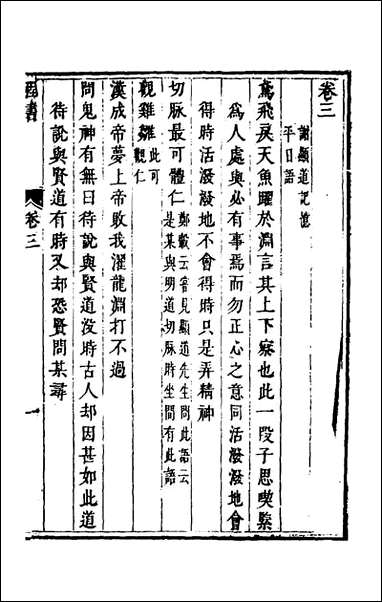 卷三
謝顯道記憶
平日語
鳶飛戾天魚躍於淵言其上下察也此一段子思喫緊
爲人處與必有事焉而勿正心之意同活潑潑地會
得時活潑潑地不會得時只是弄精神
切脉最可體仁
鄭轂云嘗見顯道先生問此語云
是某與明道切脉時坐間有此語
觀雞雛
此可
觀仁
漢成帝夢上帝敗我濯龍淵打不過
問鬼神有無曰待說與賢道沒時古人却因甚如此道
待說與賢道有時又却恐賢問某尋
卷三
一